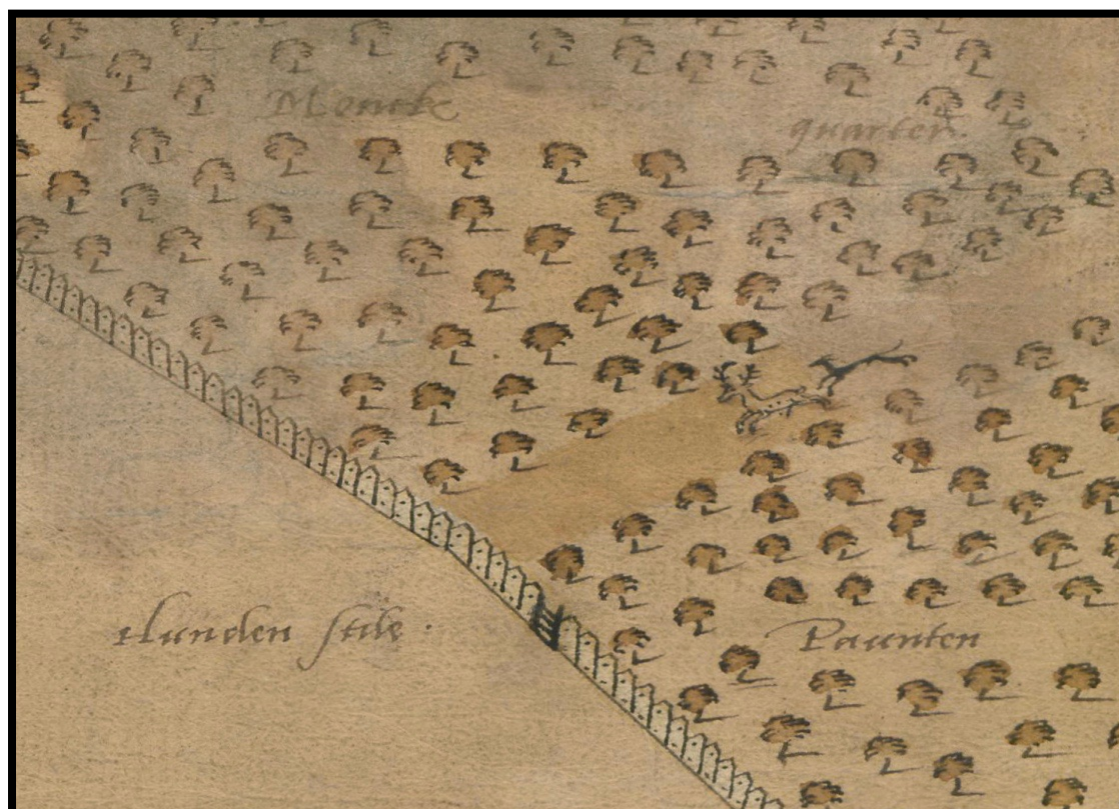 Moncke
quarter
Hunden stile
Paunten